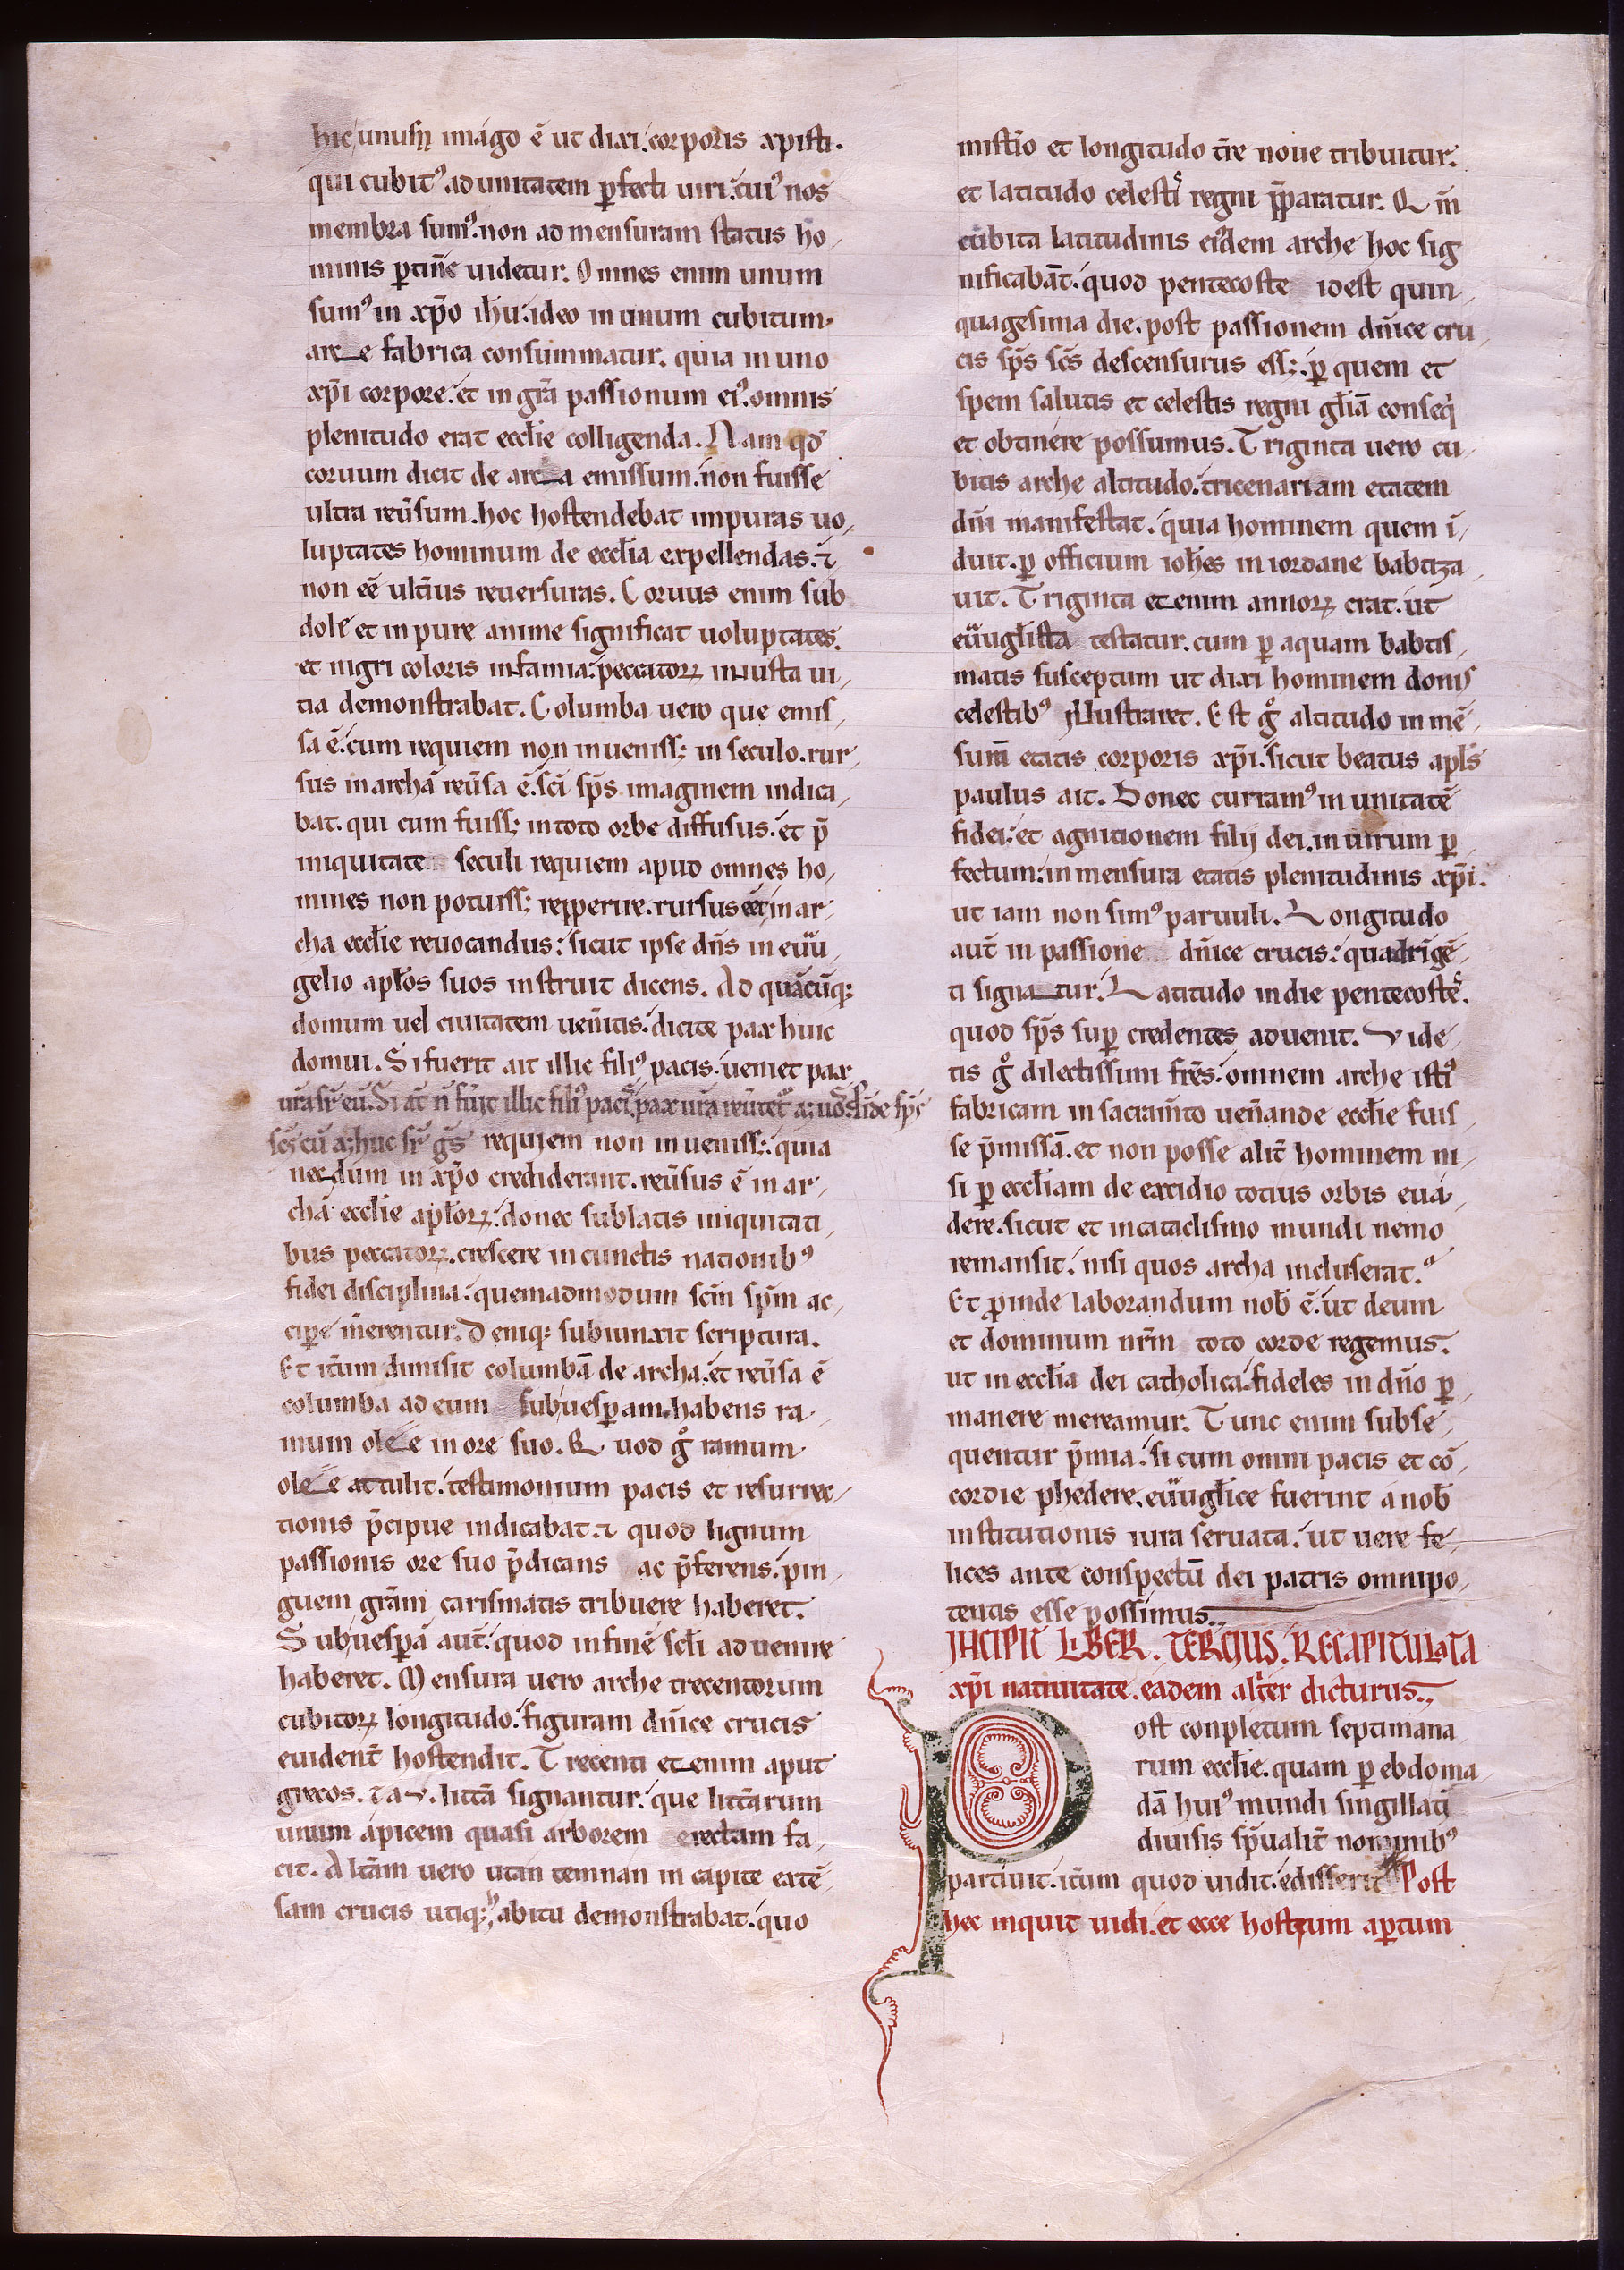 hic unus imago ē ut dixi. corporis xpisti.
qui cubitꝰ ad unitatem ꝑfecti uiri. cuiꝰ nos
membra sumꝰ. non ad mensuram status ho,
minis ꝑtiñe uidetur. Omnes enim unum
sumꝰ in xp̄o ihū. ideo in unum cubitum
arc e fabrica consummatur. quia in uno
xp̄i corpore. et in grā passionum eiꝰ. omnis
plenitudo erat ecctie colligenda. Nam qd̄
coruum dicit de arc a emissum. non fuisse
ultra reūsum. hoc hostendebat inpuras uo,
luptates hominum de eccłia expellendas. ⁊
non eē ult̄ius reuersuras. Coruus enim sub
dole et inpure anime significat uoluptates.
et nigri coloris infamia. peccatoꝝ iniusta ui,
tia demonstrabat. Columba uero que emis,
sa ē. cum requiem non inueniss; in seculo. rur,
sus in archā reūsa ē. sc̄i sp̄s imaginem indica,
bat. qui cum fuiss; in toto orbe diffusus. et p̄
iniquitate seculi requiem apud omnes ho,
mines non potuiss; repperire. rursus eēt in ar,
cha ecctie reuocandus: sicut ipse dn̄s in euū,
gelio aptos suos instruit dicens. Ad quācūq;
domum uel ciuitatem uen̄itis. dicite pax huic
domui. Si fuerit ait illic filiꝰ pacis. ueniet pax
ur̄a sr̄ eū. Si aūt n̄ fūit illic filiꝰ pacis. pax ur̄a reūtet᷑ ad uos. Inde sp̄s
sc̄s cū adhuc sr̄ gs̄ requiem non inueniss;. quia
necdum in xp̄o crediderant. reūsus ē in ar,
chā ecctie aptoꝝ. donec sublatis iniquitati,
bus peccatoꝝ. crescere in cunctis nationibꝰ
fidei disciplina. quemadmodum scm̄ spm̄ ac,
cipe m̄erentur. Deniq; subiunxit scriptura.
Et it̄um dimisit columbā de archa. et reūsa ē
columba ad eum sub uesꝑam. habens ra,
mum ole e in ore suo. Quod gͦ ramum
ole e attulit. testimonium pacis et resurrec,
tionis p̄cipue indicabat. ⁊ quod lignum
passionis ore suo p̄dicans ac p̄ferens. pin,
guem grām carismatis tribuere haberet.
Sub uesꝑā aut̄. quod in finē sctī aduenire
haberet. Mensura uero arche trecentorum
cubitoꝝ longitudo. figuram dn̄ice crucis
euident̄ hostendit. Trecenti etenim aput
grecos. Tav. litt̄a signantur. que litt̄arum
unum apicem quasi arborem erectam fa,
cit. Alt̄am uero utan temnan in capite extē
sam crucis utiq; habitu demonstrabat. quo
mistio et longitudo t̄re noue tribuitur.
et latitudo celestis regni p̄paratur. Q in
cubita latitudinis eiꝰdem arche hoc sig
nificabāt. quod pentecoste idest quin,
quagesima die. post passionem dn̄ice cru,
cis sp̄s sc̄s descensurus ess;. ꝑ quem et
spem salutis et celestis regni głiā conseqi
et obtinere possumus. Triginta uero cu,
bitis arche altitudo. tricenariam etatem
dn̄i manifestat. quia hominem quem ī,
duit. ꝑ officium ioħes in iordane babtiza,
uit. Triginta etenim annoꝝ erat. ut
euūgłista testatur. cum ꝑ aquam babtis,
matis susceptum ut dixi hominem donis
celestibꝰ illustraret. Est gͦ altitudo in mē,
sura etatis corporis xp̄i. sicut beatus apłs
paulus ait. Donec curramꝰ in unitatē
fidei. et agnitionem filij dei. in uirum ꝑ,
fectum: in mensura etatis plenitudinis xp̄i.
ut iam non simꝰ paruuli. Longitudo
aut̄ in passione dn̄ice crucis. quadrigē,
ti signa tur. Latitudo in die pentecostes.
quod sp̄s suꝑ credentes aduenit. Vide,
tis gͦ dilectissimi fr̄es. omnem arche istiꝰ
fabricam in sacram̄to uen̄ande ecctie fuis,
se p̄missā. et non posse alit̄ hominem ni,
si ꝑ eccłiam de excidio totius orbis eua,
dere. sicut et in cataclismo mundi nemo
remansit. nisi quos archa incluserat.
Et ꝓinde laborandum nob̄ ē. ut deum
et dominum nr̄m toto corde regemus.
ut in eccłia dei catholica. fideles in dn̄o ꝑ,
manere mereamur. Tunc enim subse,
quentur p̄mia. si cum omni pacis et cō,
cordie phedere. euūgłice fuerint a nob̄
institutionis iura seruata. ut uere fe,
lices ante conspectū dei patris omnipo,
tentis esse possimus.
INCIPIT LIBER. TERCIUS. RECAPITULATA
xp̄i natiuitate. eadem alit̄er dicturus.
Post conpletum septimana
rum ecctie. quam ꝑ ebdoma,
dā huiꝰ mundi singillati
diuisis sp̄ualit̄ nominibꝰ
partiuit. it̄um quod uidit. edisserit Post
hec inquit uidi. et ecce hostium aꝑtum